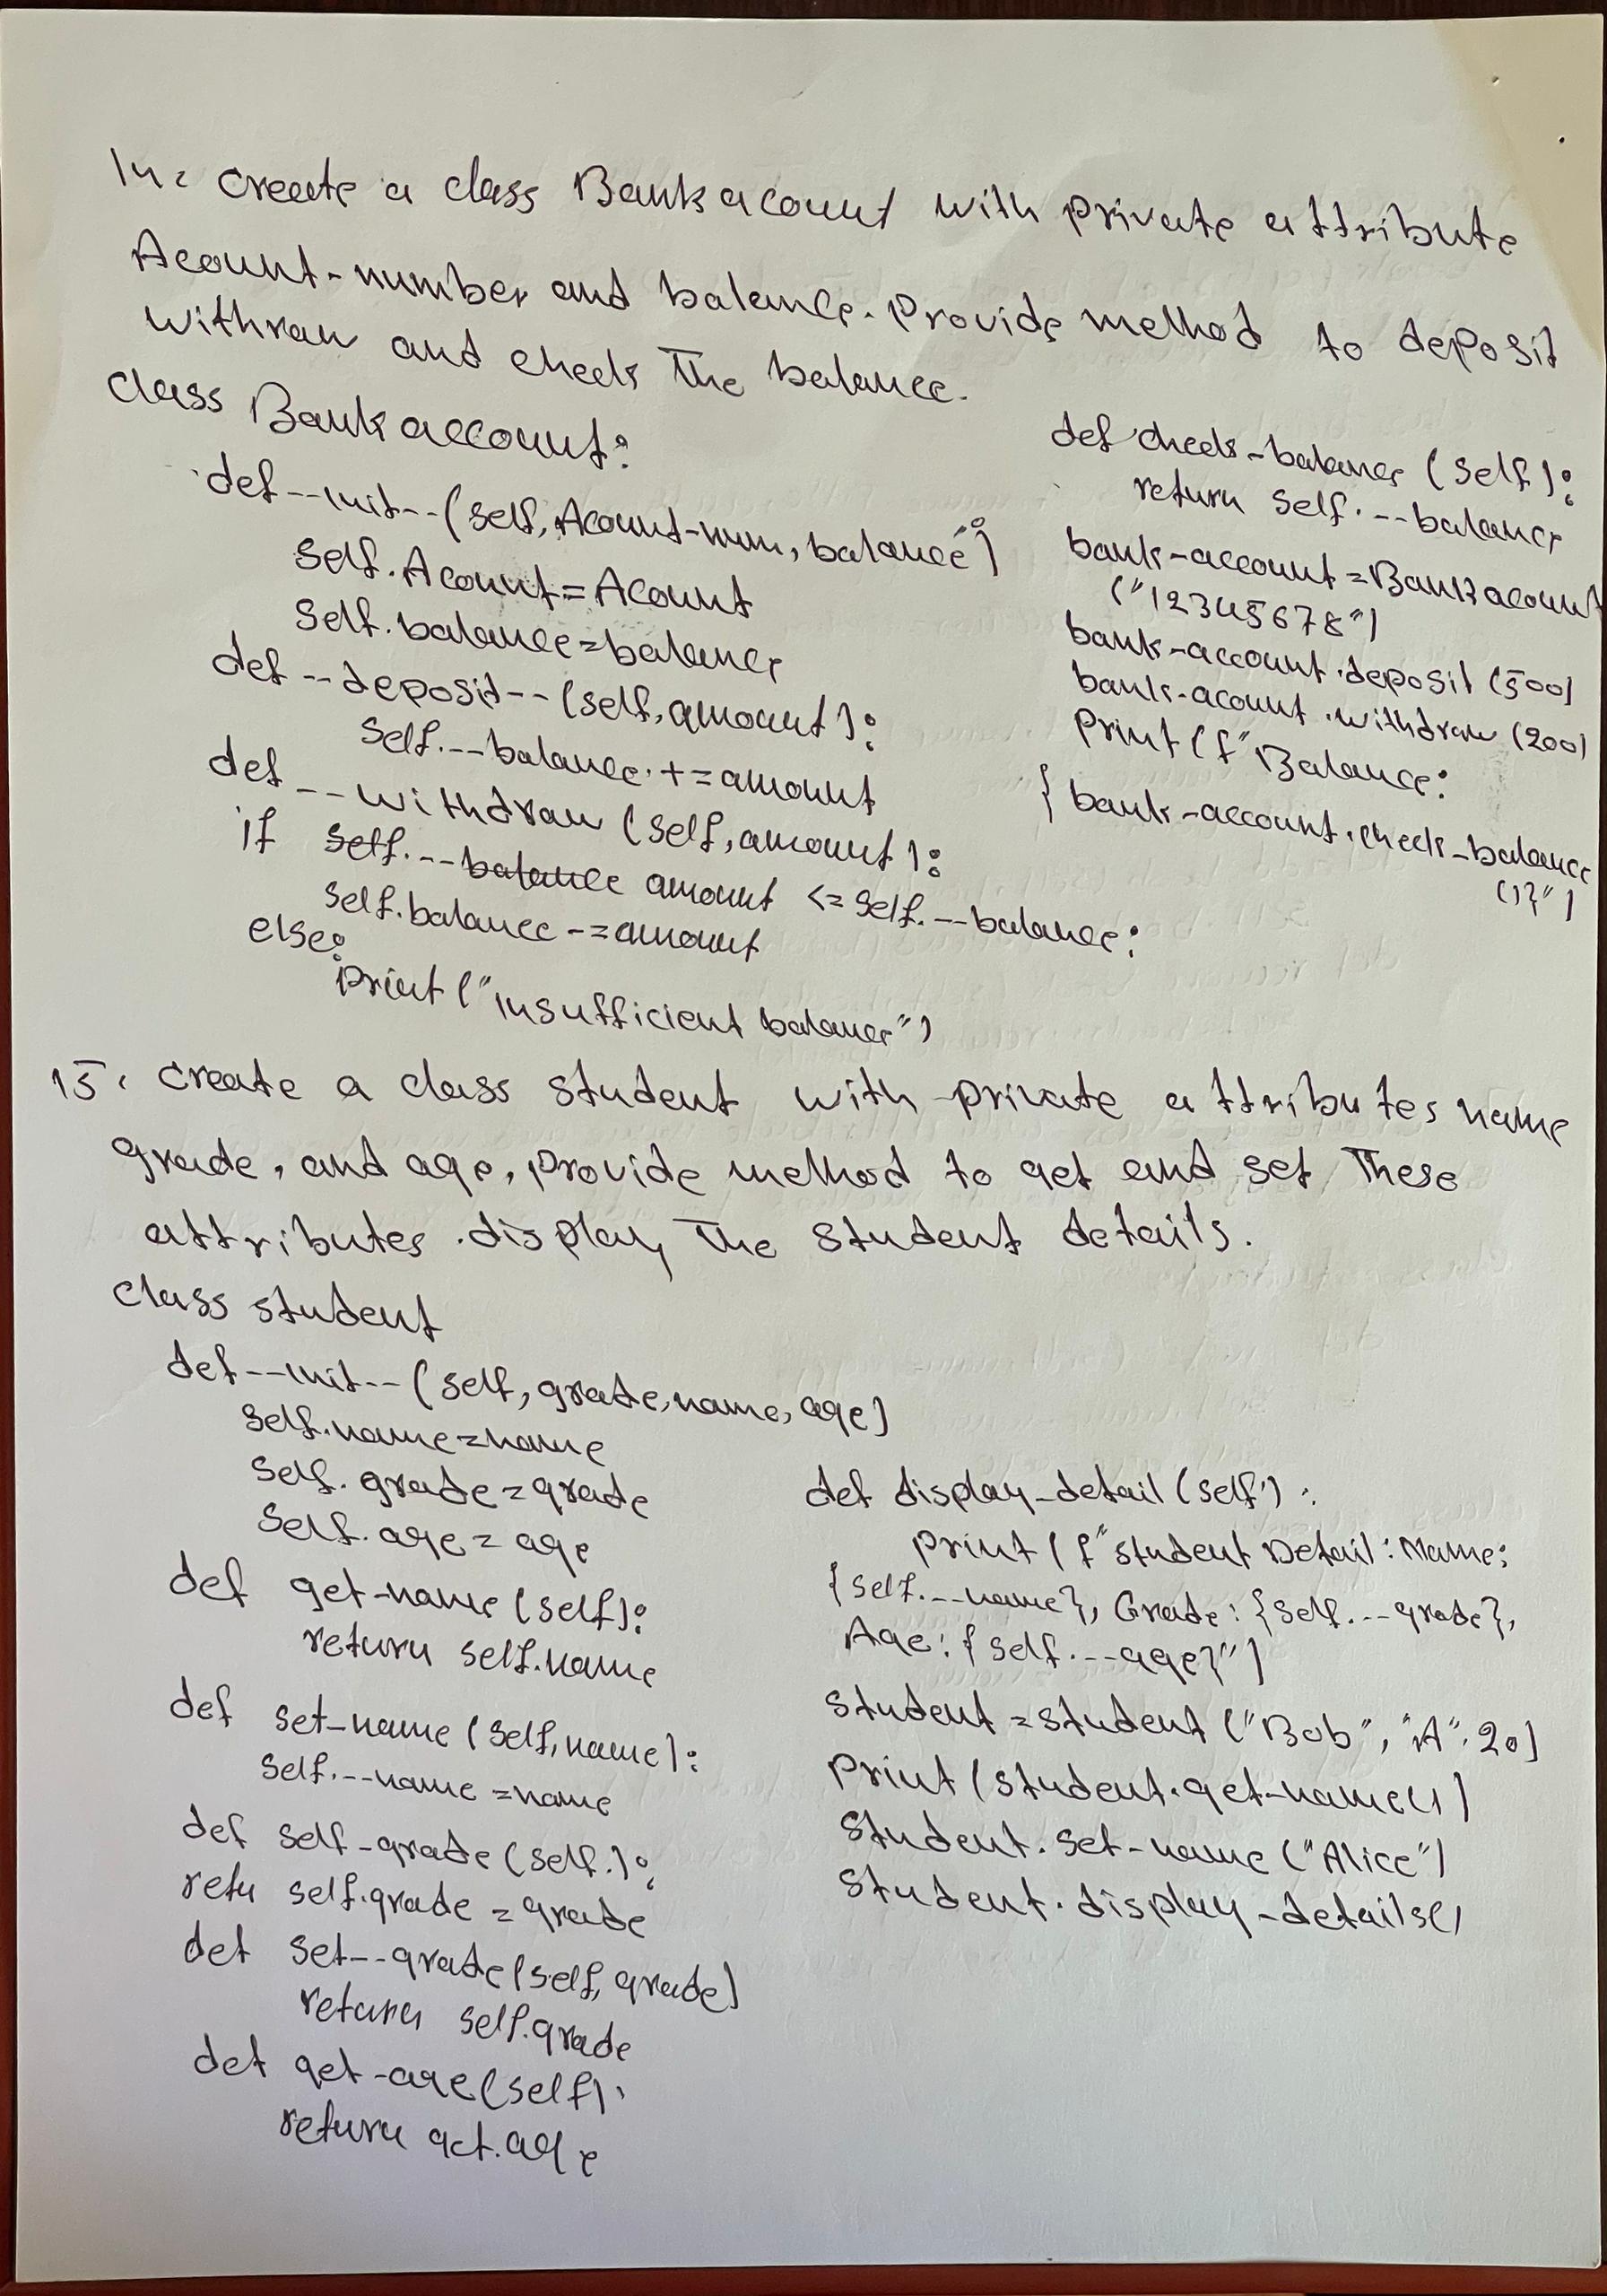 14. Create a class Bankacount with private attribute
Acount-number and balance. Provide method to deposit
withraw and check the balance.
class Bankaccount:
def --init--(self, Acount-num, balance):
self.Acount=Acount
self.balance=balance
def --deposit--(self, amount):
self.--balance.+=amount
def --withdraw (self, amount):
if self.--balance amount <= self.--balance:
self.balance -=amount
else:
print("insufficient balance")
def check-balance (self):
return self.--balance
bank-account=Bankacount
("12345678")
bank-account.deposit (500)
bank-acount.withdraw (200)
Print(f"Balance:
{bank-account.check-balance
()}")
15. create a class student with private attributes name
grade, and age, provide method to get and set these
attributes. display the student details.
class student
def --init--(self, grade, name, age)
self.name=name
self.grade=grade
self.age=age
def get-name(self):
return self.name
def set-name (self, name):
self.--name=name
def self-grade(self.):
retu self.grade=grade
def set--grade(self, grade)
return self.grade
def get-age(self):
return get.age
def display_detail(self'):
print(f"student Detail: Name:
{self.--name}, Grade: {self.--grade},
Age: {self.--age}")
student=student ("Bob", "A", 20)
print(student.get-name()
student.set-name ("Alice")
student.display-details()